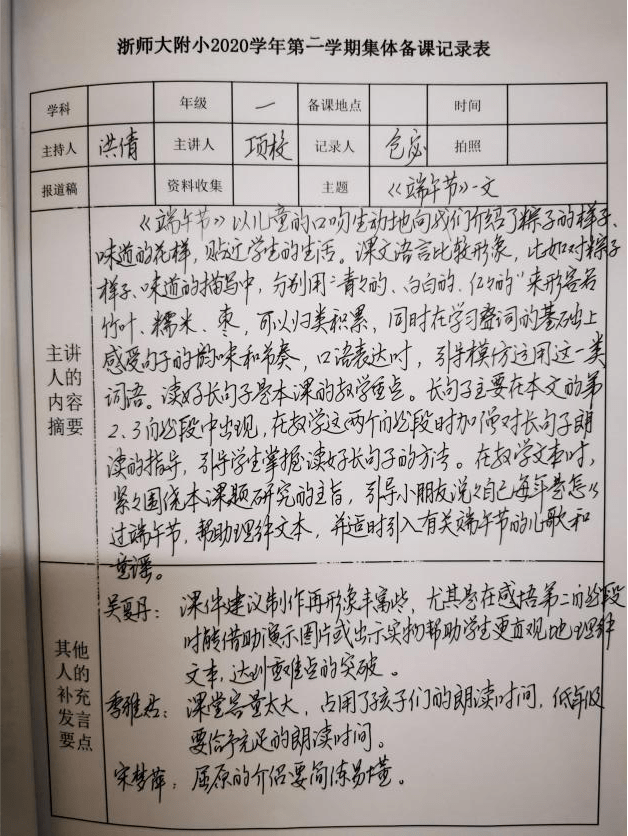 浙师大附小2020学年第二学期集体备课记录表
学科 年级 一 备课地点 时间
主持人 洪倩 主讲人 项校 记录人 包宓 拍照
报道稿 资料收集 主题 《端午节》一文
主讲人的内容摘要
《端午节》以儿童的口吻生动地向我们介绍了粽子的样子、
味道的花样，贴近学生的生活。课文语言比较形象，比如对粽子
样子、味道的描写中，分别用“青青的、白白的、红红的”来形容箬
竹叶、糯米、枣，可以归类积累，同时在学习叠词的基础上
感受句子的韵味和节奏，口语表达时，引导模仿运用这一类
词语。读好长句子是本课的教学重点。长句子主要在本文的第
2、3自然段中出现，在教学这两个自然段时加强对长句子朗
读的指导，引导学生掌握读好长句子的方法。在教学文本时，
紧紧围绕本课题研究的主旨，引导小朋友说说自己每年是怎么
过端午节，帮助理解文本，并适时引入有关端午节的儿歌和
童谣。
其他人的补充发言要点
吴夏丹：课件建议制作再形象丰富些，尤其是在感悟第二自然段
时能借助演示图片或出示实物帮助学生更直观地理解
文本，达到重难点的突破。
季雅君：课堂容量太大，占用了孩子们的朗读时间，低年级
要给予充足的朗读时间。
宋梦萍：屈原的介绍要简练易懂。